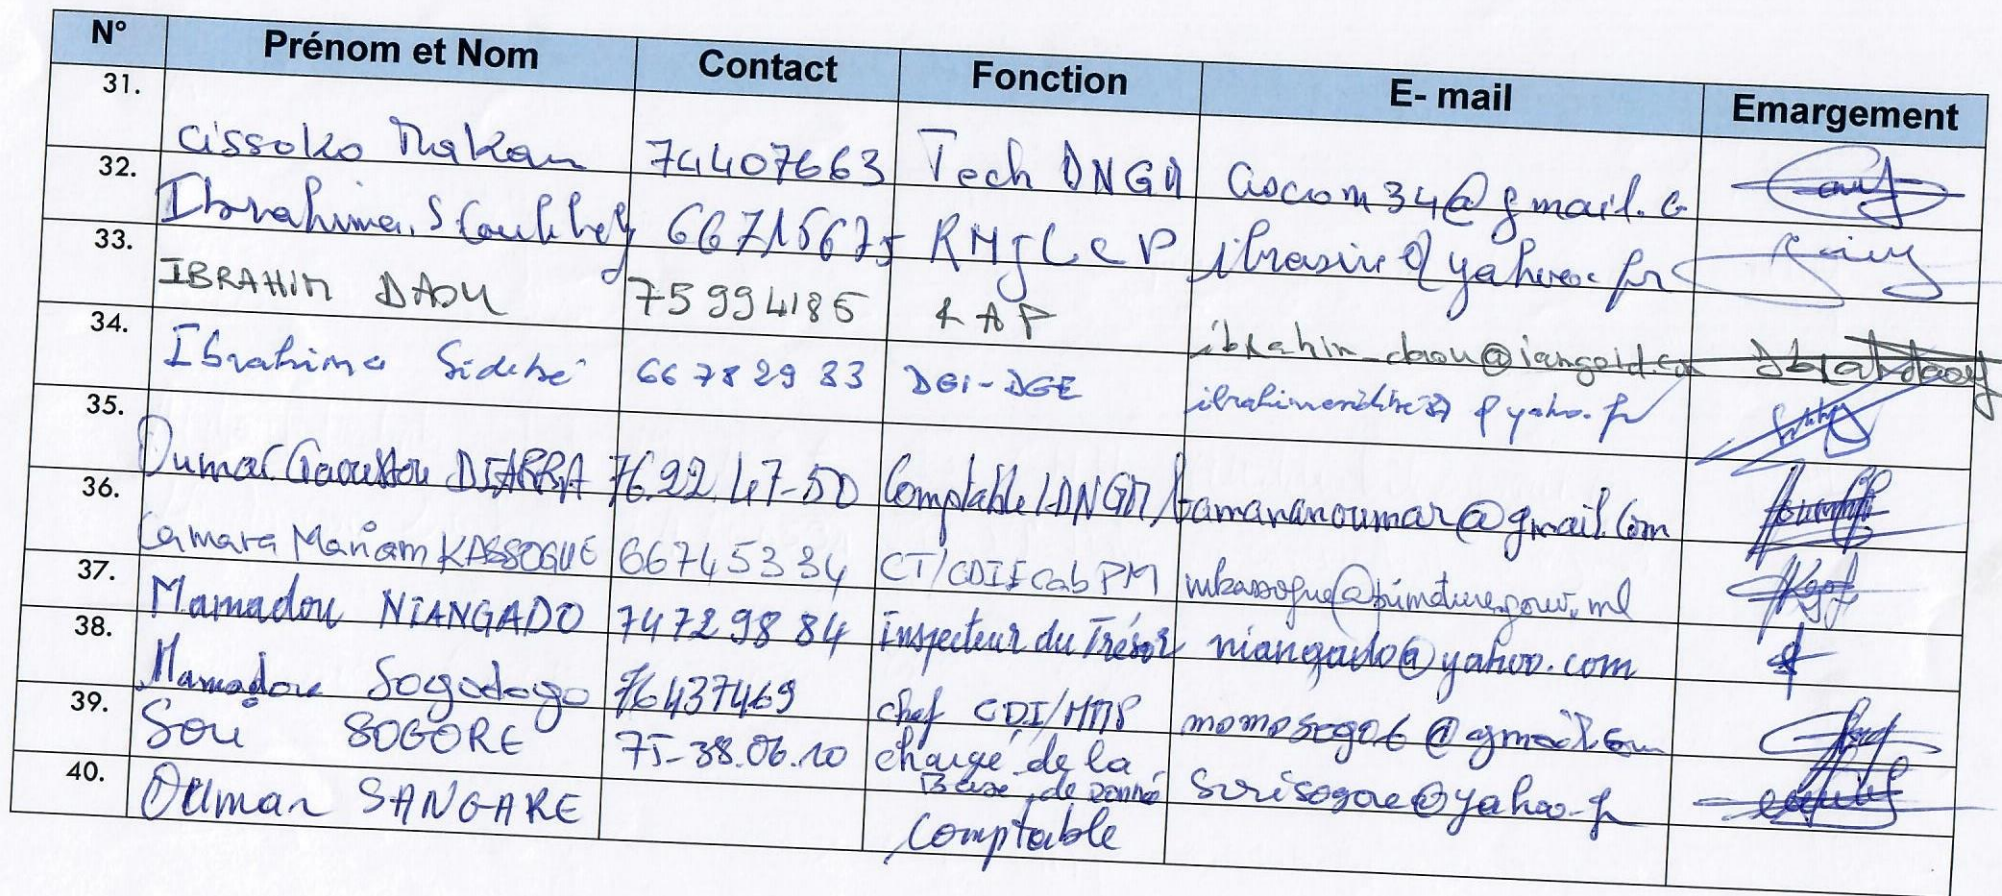 N° Prénom et Nom Contact Fonction E- mail Emargement
31. Cissoko Makan 74407663 Tech DNGM
32. Ibrahima S Coulibaly 66715675
33. IBRAHIM DAOU 75994185 ibrahim_daou@iamgold.com
34. Ibrahima Sidibé 66782983 DGI-DGE
35. Oumar Gaoussou DIARRA 76.22.47-50 Comptable/DNGM tamananoumar@gmail.com
36. Camara Mariam KASSOGUE 66745334 mkassogue@primature.gouv.ml
37. Mamadou NIANGADO 74729884 Inspecteur du Trésor niangado@yahoo.com
38. Mamadou Sogodogo 76437469 chef CDI/MMP momosogo6@gmail.com
39. Sori SOGORE 75-38.06.10 chargé de la Base de donné sorisogore@yahoo.fr
40. Oumar SANGARE Comptable